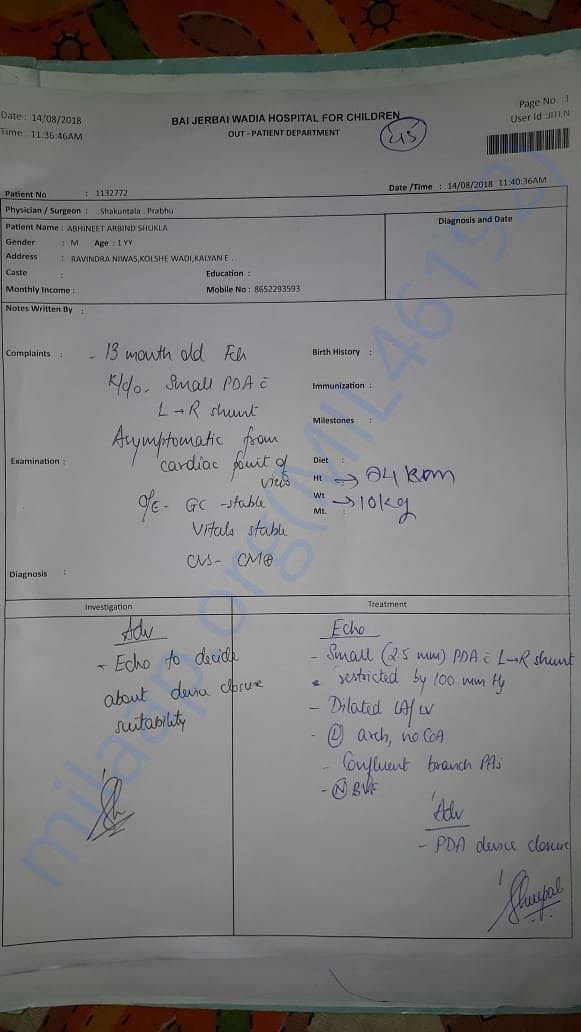 Date : 14/08/2018
Time : 11:36:46AM
BAI JERBAI WADIA HOSPITAL FOR CHILDREN
OUT - PATIENT DEPARTMENT
45
Page No. :1
User Id :JITEN
Date /Time : 14/08/2018 11:40:36AM
Patient No : 1132772
Physician / Surgeon : . Shakuntala . Prabhu
Patient Name : ABHINEET ARBIND SHUKLA
Gender : M Age : 1 YY
Address : RAVINDRA NIWAS,KOLSHE WADI,KALYAN E .
Caste : Education :
Monthly Income : Mobile No : 8652293593
Diagnosis and Date
Notes Written By :
Complaints :
- 13 month old Fch
K/c/o. Small PDA c̄
L→R shunt
Asymptomatic from
cardiac point of
view
Examination :
O/E- GC -stable
Vitals stable
CVS- CM⊕
Diagnosis :
Birth History :
Immunization :
Milestones :
Diet :
Ht →
Wt → 10kg
Mt. :
Investigation
Adv
- Echo to decide
about device closure
suitability
Treatment
Echo
- Small (2.5 mm) PDA c̄ L→R shunt
restricted by 100 mm Hg
- Dilated LA/LV
- (L) arch, no CoA
- Confluent branch PAs
- (N) BVF
Adv
- PDA device closure
milaap.org(MIL46192)